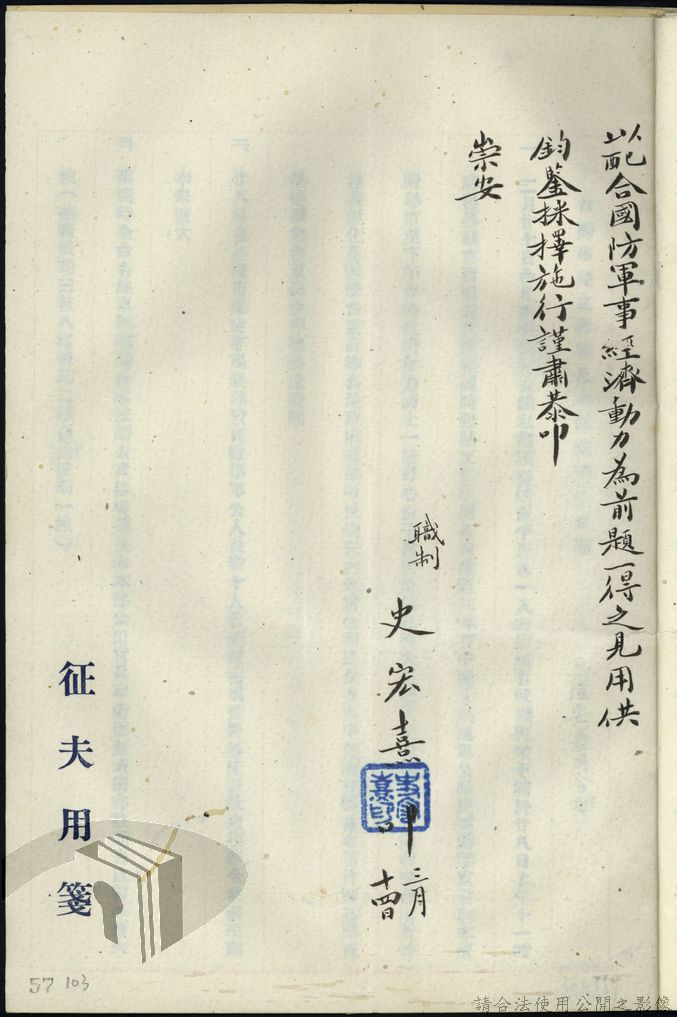 以配合國防軍事經濟動力為前題一得之見用供
鈞鑒採擇施行謹肅恭叩
崇安
職制
史宏熹
叩
三月
十四日
史宏
熹印
征夫用箋
57 103
請合法使用公開之影像